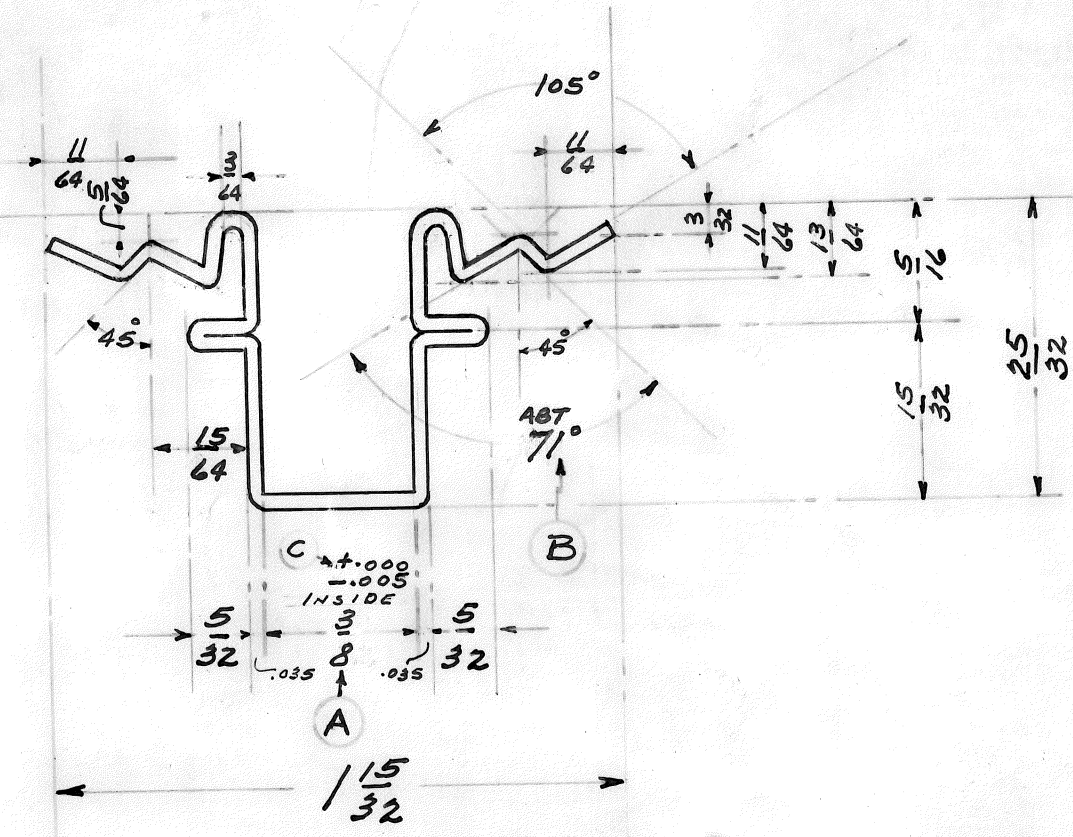 105°
11/64
5/64
13/64
11/64
3/32
11/64
13/64
5/16
25/32
45°
45°
15/32
15/64
ABT
71°
B
C +.000
-.005
INSIDE
5/32
3/8
5/32
.035
.035
A
1 15/32